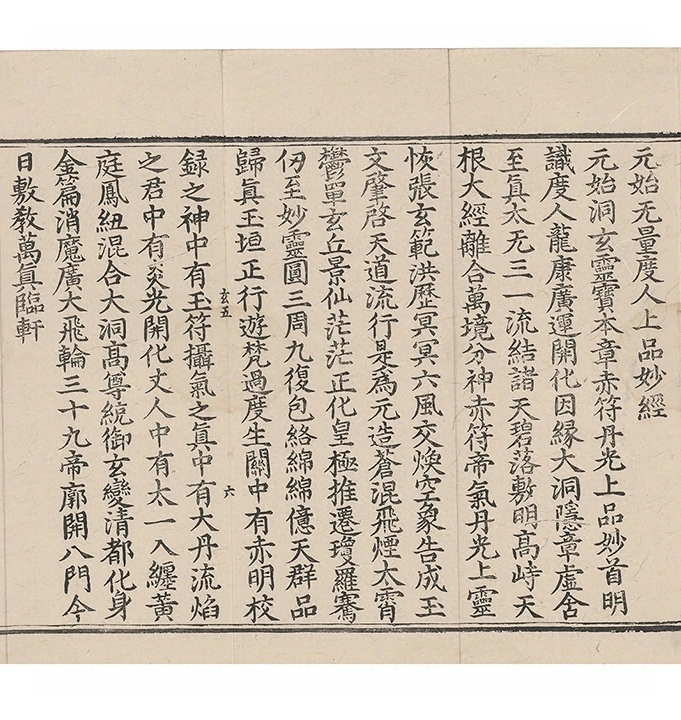 元始无量度人上品妙經
元始洞玄靈寶本章赤符丹光上品妙首明
識度人龍康廣運開化因緣大洞隱章虛舍
至眞太无三一流結諸天碧落敷明高峙天
根大經離合萬境分神赤符帝氣丹光上靈
恢張玄範洪歷冥冥六風交煥空象告成玉
文肇啓天道流行是爲元造蒼混飛煙太霄
鬱單玄丘景仙茫茫正化皇極推遷瓊羅騫
仞至妙靈圓三周九復包絡綿綿億天群品
歸眞玉垣正行遊梵過度生關中有赤明校
玄五 六
録之神中有玉符攝氣之眞中有大丹流焰
之君中有炎光開化丈人中有太一入纏黃
庭鳳紐混合大洞高尊統御玄變清都化身
金篇消魔廣大飛輪三十九帝廓開八門今
日敷教萬眞臨軒